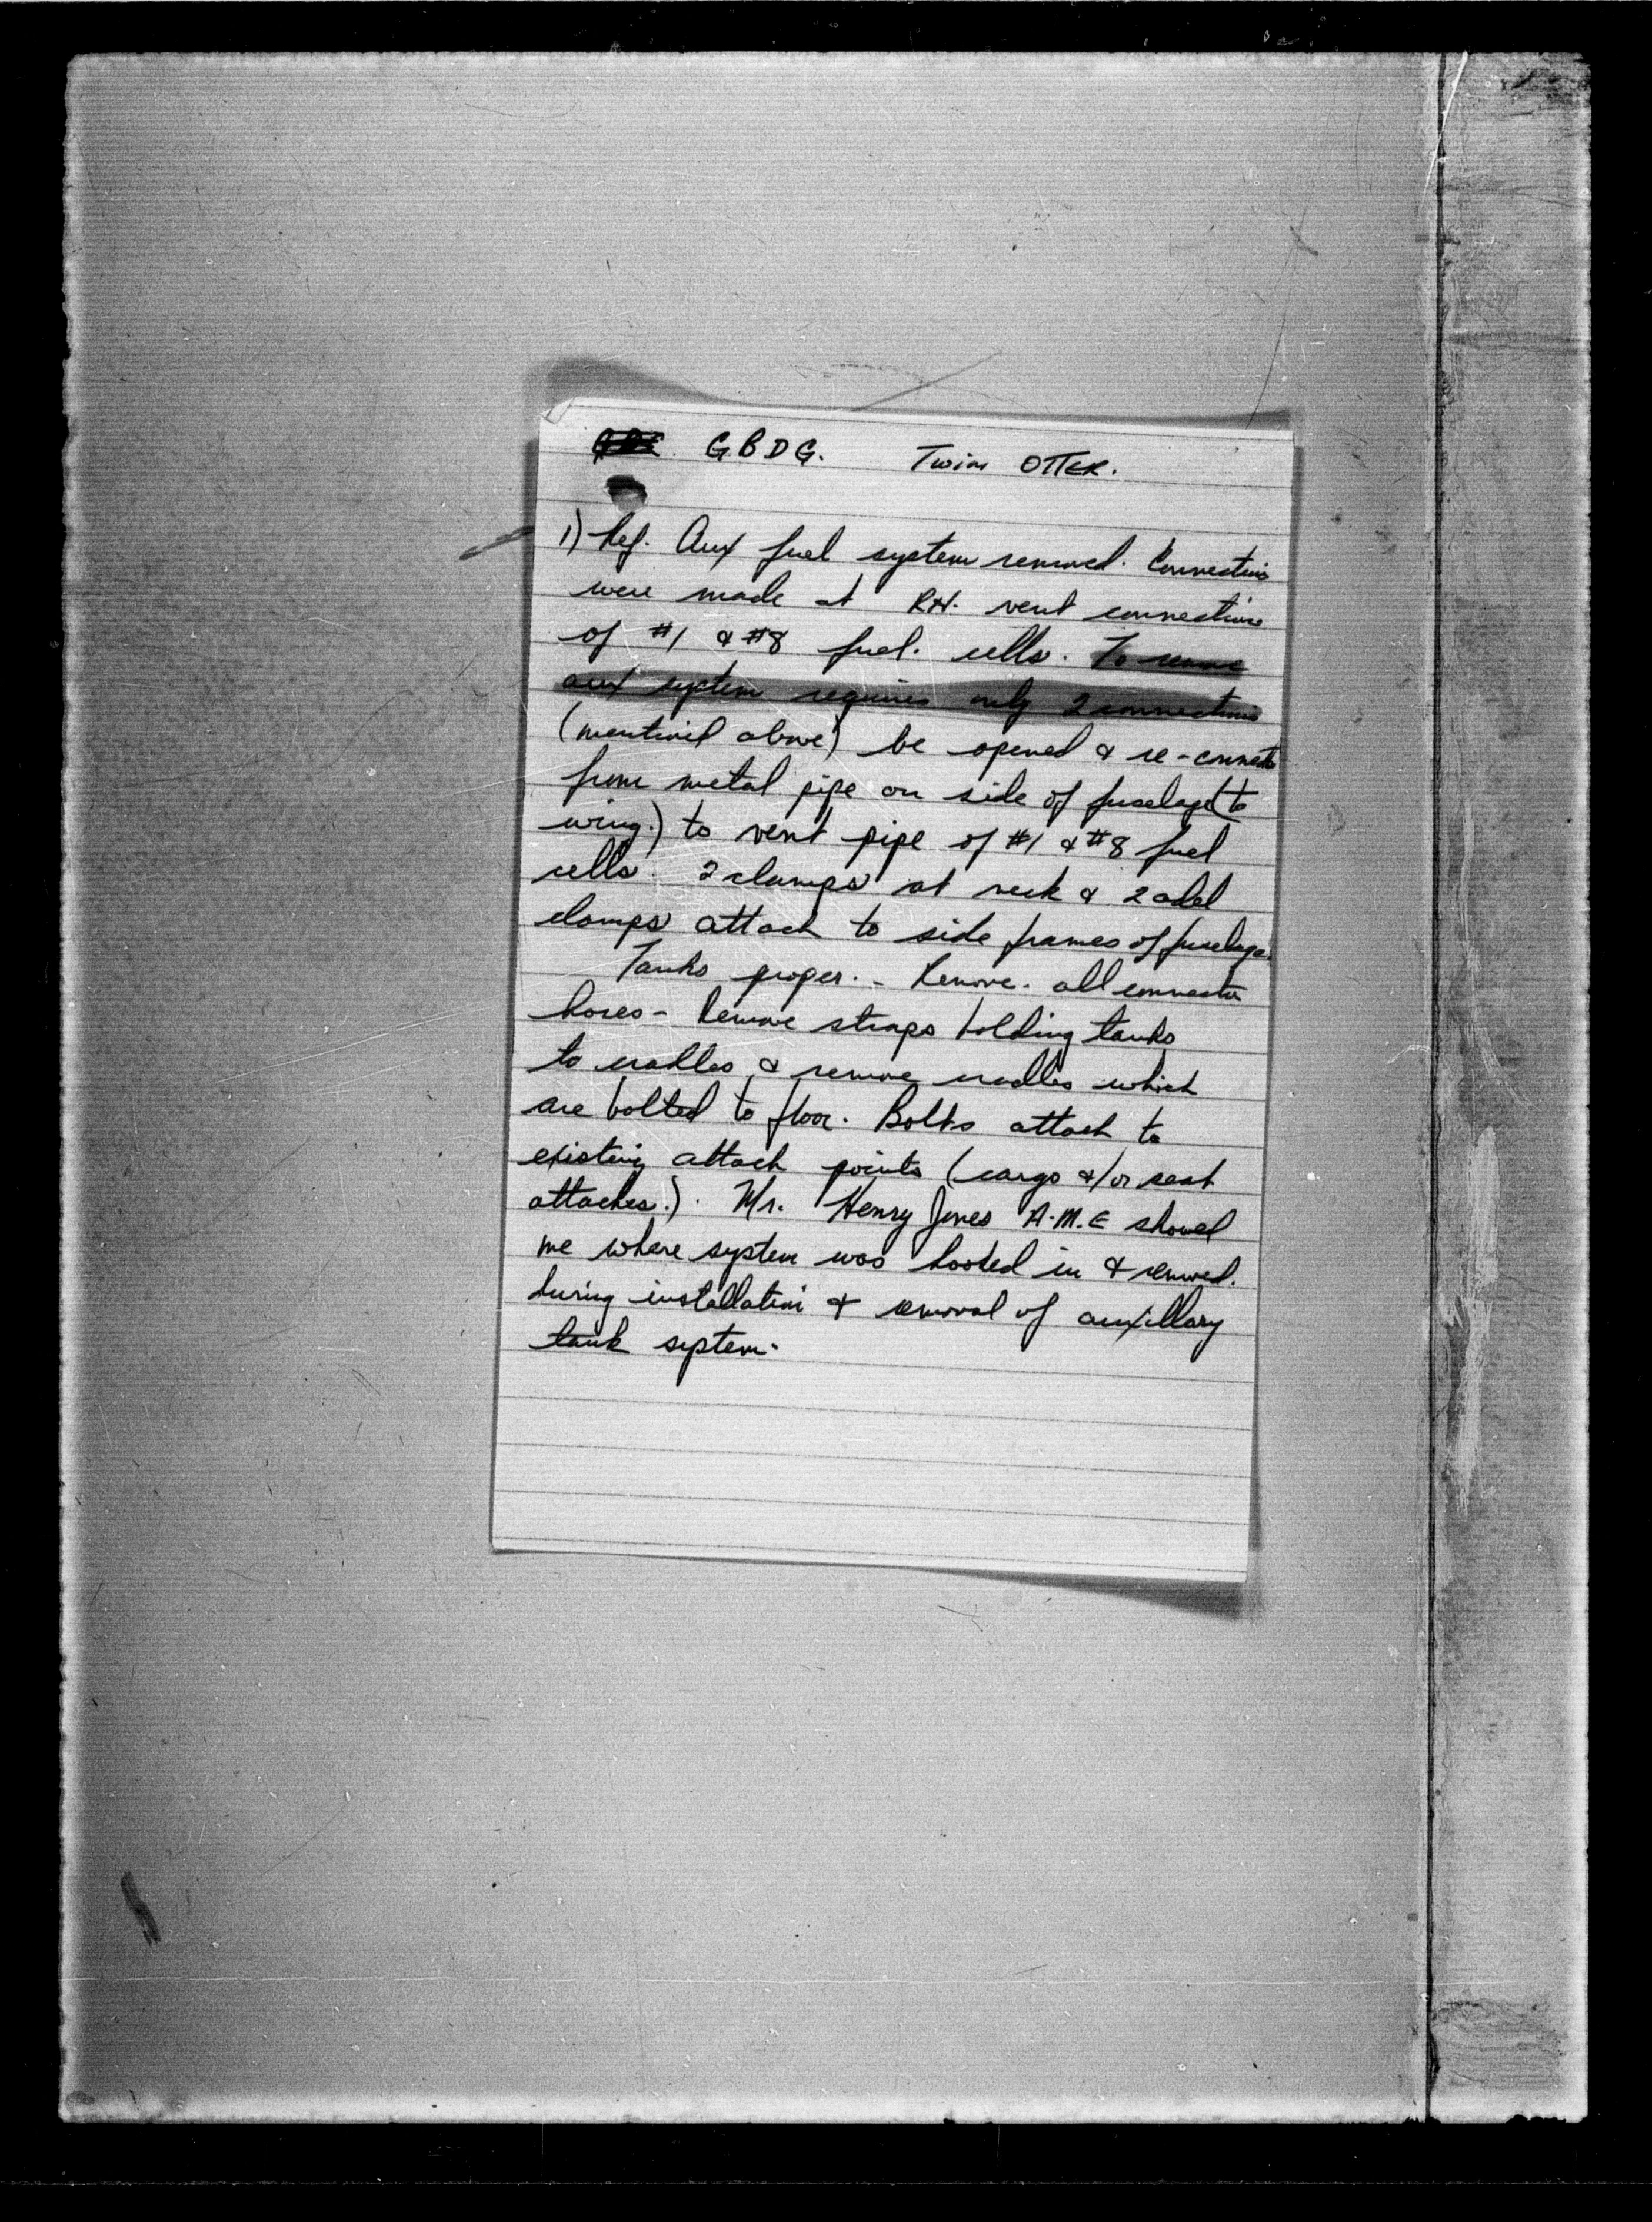 G.B.D.G. Twin OTTER.
1) Ref. Aux fuel system removed. Connections
were made at R.H. vent connections
of #1 & #8 fuel. cells. To remove
aux system requires only 2 connections
(mentioned above) be opened & re-connects
from metal pipe on side of fuselage (to
wing.) to vent pipe of #1 & #8 fuel
cells. 2 clamps at neck & 2 adel
clamps attach to side frames of fuselage.
Tanks proper. - Remove. all connector
hoses - Remove straps holding tanks
to cradles & remove cradles which
are bolted to floor. Bolts attach to
existing attach points (cargo &/or seat
attaches.). Mr. Henry Jones A.M.E showed
me where system was hooked in & removed.
during installation & removal of auxillary
tank system.